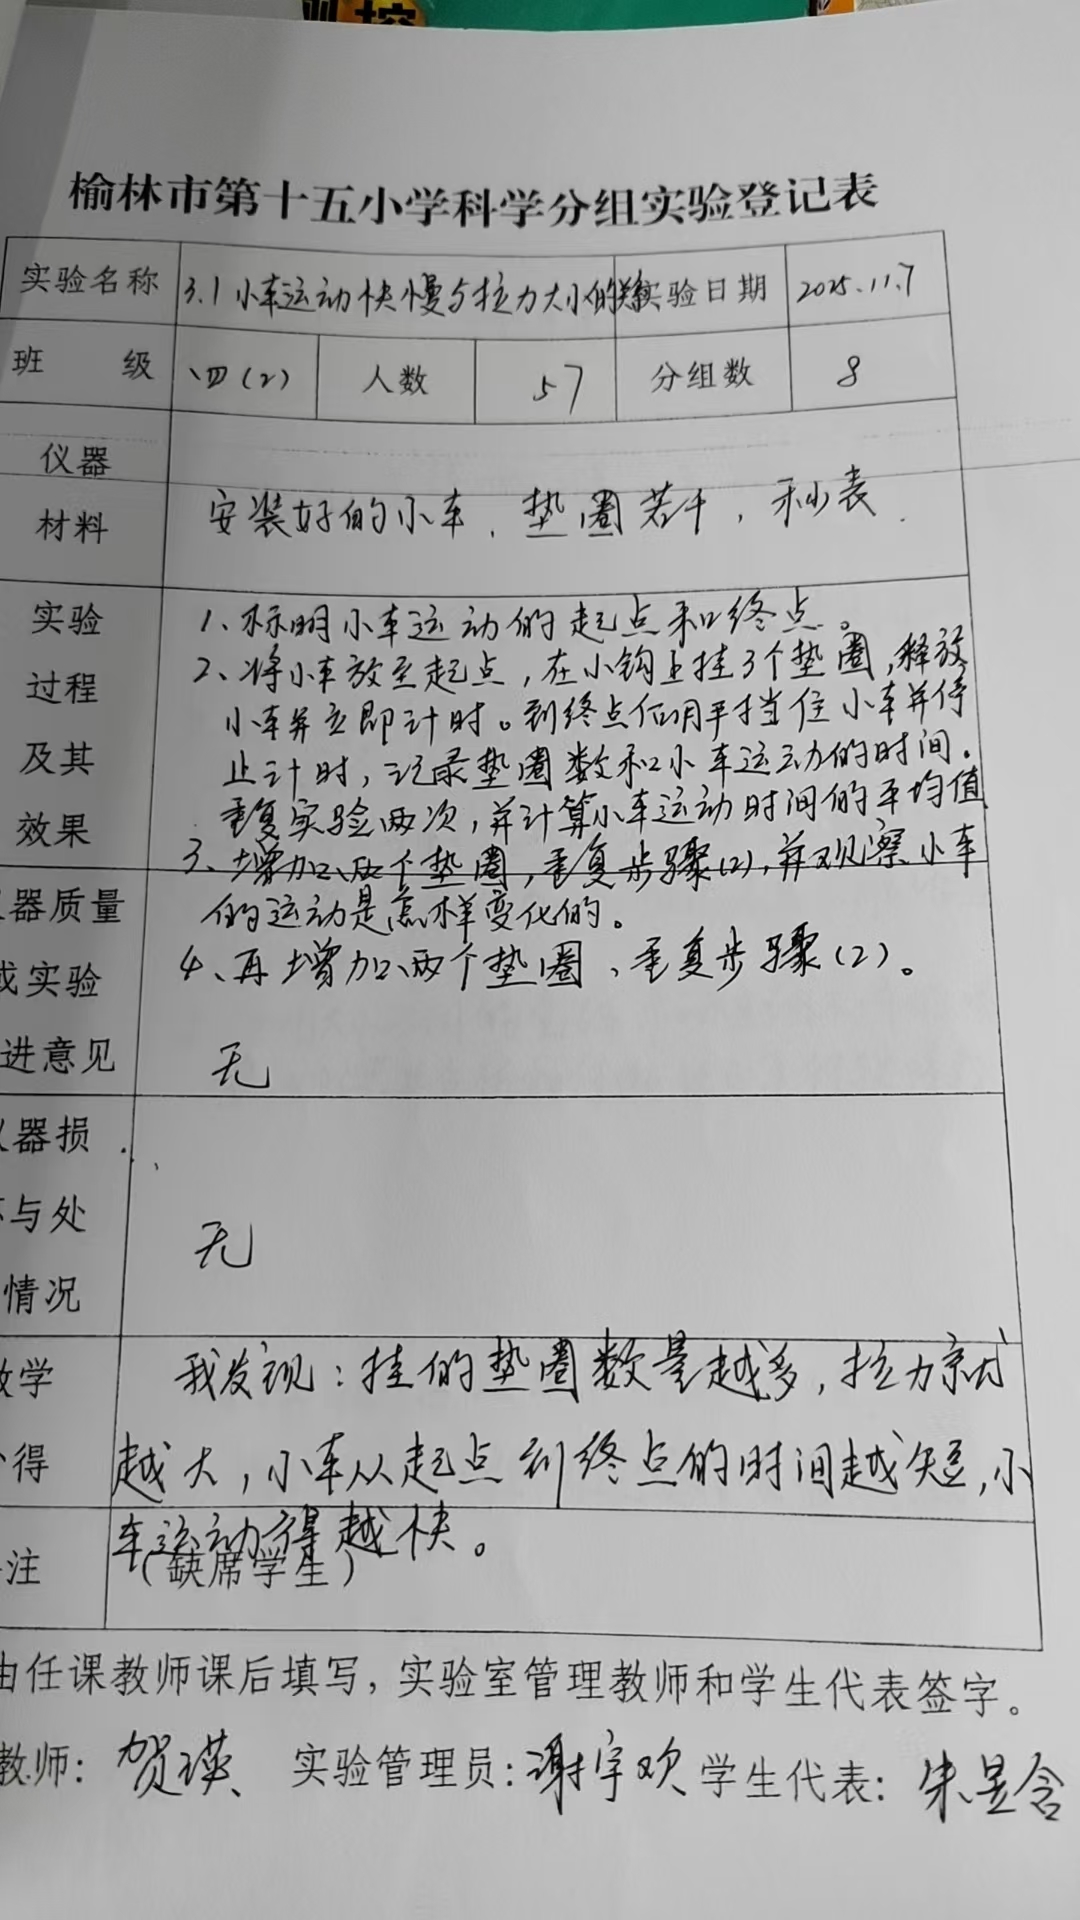 榆林市第十五小学科学分组实验登记表
实验名称 3.1小车运动快慢与拉力大小的关系 实验日期 2025.11.7
班 级 四(2) 人数 57 分组数 8
仪器
材料
安装好的小车、垫圈若干,秒表.
实验
过程
及其
效果
1、标明小车运动的起点和终点。
2、将小车放至起点,在小钩上挂3个垫圈,释放
小车并立即计时。到终点位用手挡住小车并停
止计时,记录垫圈数和小车运动的时间。
重复实验两次,并计算小车运动时间的平均值
3、增加两个垫圈,重复步骤(2),并观察小车
的运动是怎样变化的。
4、再增加两个垫圈、重复步骤(2)。
器质量
或实验
进意见
无
器损
与处
情况
无
教学
得
我发现:挂的垫圈数量越多,拉力就
越大,小车从起点到终点的时间越短,小
车运动得越快。
注
(缺席学生)
由任课教师课后填写,实验室管理教师和学生代表签字。
教师:贺瑛 实验管理员:谢宇欢 学生代表:朱昱含